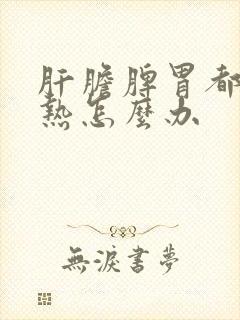 肝膽脾胃都
熱怎麼办
無淚書夢